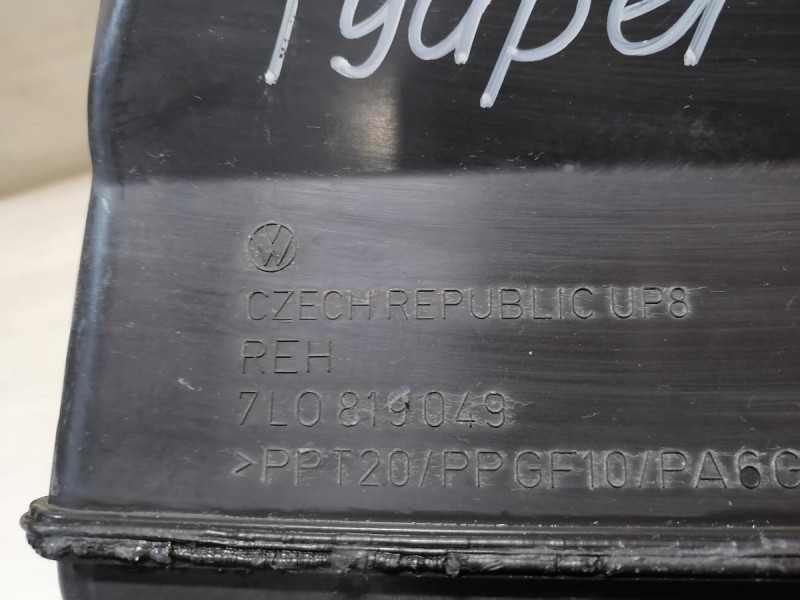 Туарег
VW
CZECH REPUBLIC UP8
REH
7L0 819 049
>PPT20/PPGF10/PA6G